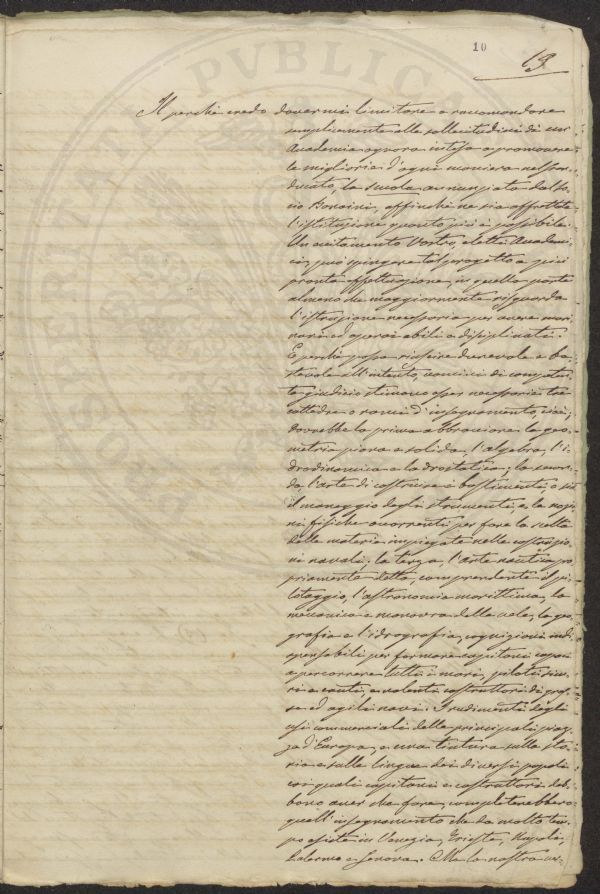 10
19
Il perchè credo dovermi limitare a raccomandare
semplicemente alla sollecitudine di un'
Accademia ognora intesa a promuovere
le migliorie d'ogni maniera nel
Ducato, la scuola annunziata dal
Boncini, affinchè ne sia affrettata
l'istituzione quanto più è possibile.
Un eccitamento Vostro, eletti Accademi-
ci, può spingere tal progetto a più
pronta effettuazione, in quella parte
almeno che maggiormente risguarda
l'istruzione necessaria per avere mari-
nari ed operai abili e disciplinati.
E perchè possa riuscire durevole e ba-
stevole all'intento, uomini di competen-
te giudizio stimano esser necessarie tre
cattedre o rami d'insegnamento, cioè;
dovrebbe la prima abbracciare la geo-
metria piana e solida, l'algebra, l'i-
drodinamica e la drostatica; la secon-
da l'arte di costruire i bastimenti o sia
il maneggio degli strumenti, e le nozio-
ni fisiche occorrenti per fare la scelta
delle materie impiegate nelle costruzio-
ni navali; la terza, l'arte nautica pro-
priamente detta, comprendente il pi-
lotaggio, l'astronomia marittima, la
meccanica e manovra delle vele, la geo-
grafia e l'idrografia, cognizioni indi-
spensabili per formare capitani capaci
a percorrere tutti i mari, piloti sicu-
ri e cauti, e valenti costruttori di gros-
se ed agili navi. I rudimenti degli
usi commerciali delle principali piaz-
ze d'Europa, e una tintura sulla sto-
ria e sulle lingue dei diversi popoli
coi quali capitani e costruttori deb-
bono aver che fare, completerebbero
quell'insegnamento che da molto tem-
po esiste in Venezia, Trieste, Napoli,
Palermo e Genova. Ma la nostra